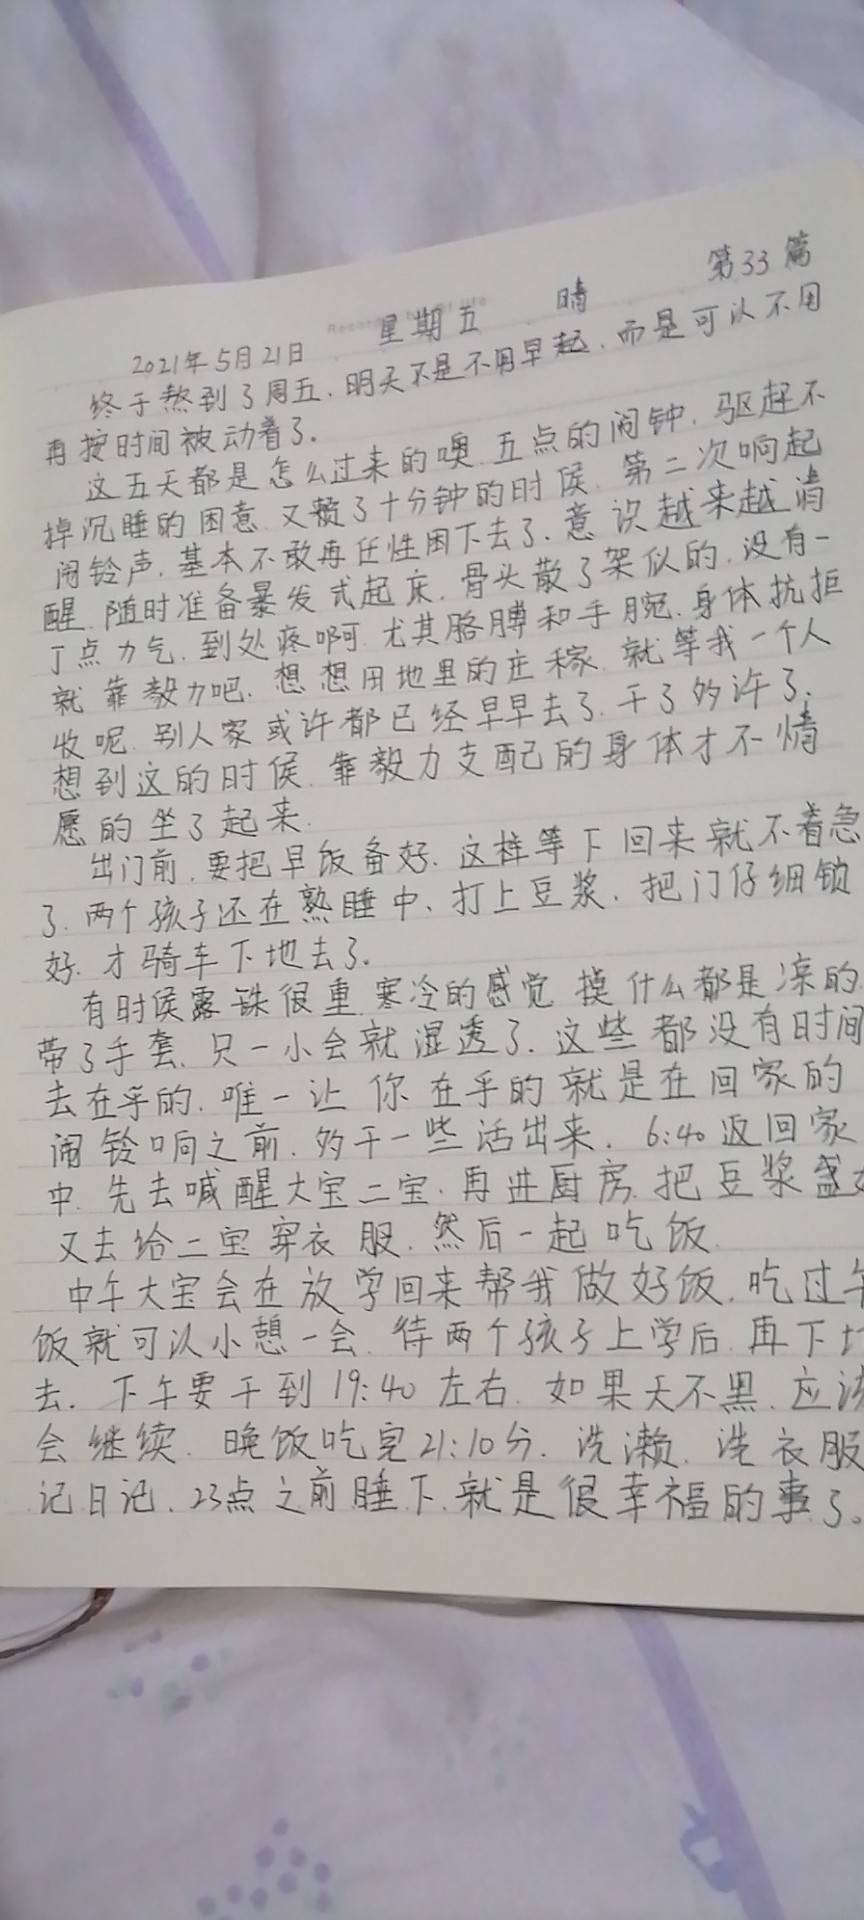 第33篇
2021年5月21日 星期五 晴
终于熬到了周五.明天不是不用早起.而是可以不用
再按时间被动着了。
这五天都是怎么过来的噢.五点的闹钟.驱赶不
掉沉睡的困意.又赖了十分钟的时候.第二次响起
闹铃声.基本不敢再任性困下去了.意识越来越清
醒.随时准备暴发式起床.骨头散了架似的.没有一
丁点力气.到处疼啊.尤其胳膊和手腕.身体抗拒
就靠毅力吧.想想田地里的庄稼.就等我一个人
收呢.别人家或许都已经早早去了.干了多许了.
想到这的时候.靠毅力支配的身体才不情
愿的坐了起来.
出门前.要把早饭备好.这样等下回来就不着急
了.两个孩子还在熟睡中.打上豆浆.把门仔细锁
好.才骑车下地去了。
有时候露珠很重.寒冷的感觉 摸什么都是凉的
带了手套.只一小会就湿透了.这些都没有时间
去在乎的.唯一让你在乎的就是在回家的
闹铃响之前.多干一些活出来.6:40返回家
中.先去喊醒大宝二宝.再进厨房.把豆浆盛
又去给二宝穿衣服.然后一起吃饭.
中午大宝会在放学回来帮我做好饭.吃过午
饭就可以小憩一会.待两个孩子上学后.再下
去.下午要干到19:40左右.如果天不黑.应该
会继续.晚饭吃完21:10分.洗濑.洗衣服
记日记.23点之前睡下.就是很幸福的事了。